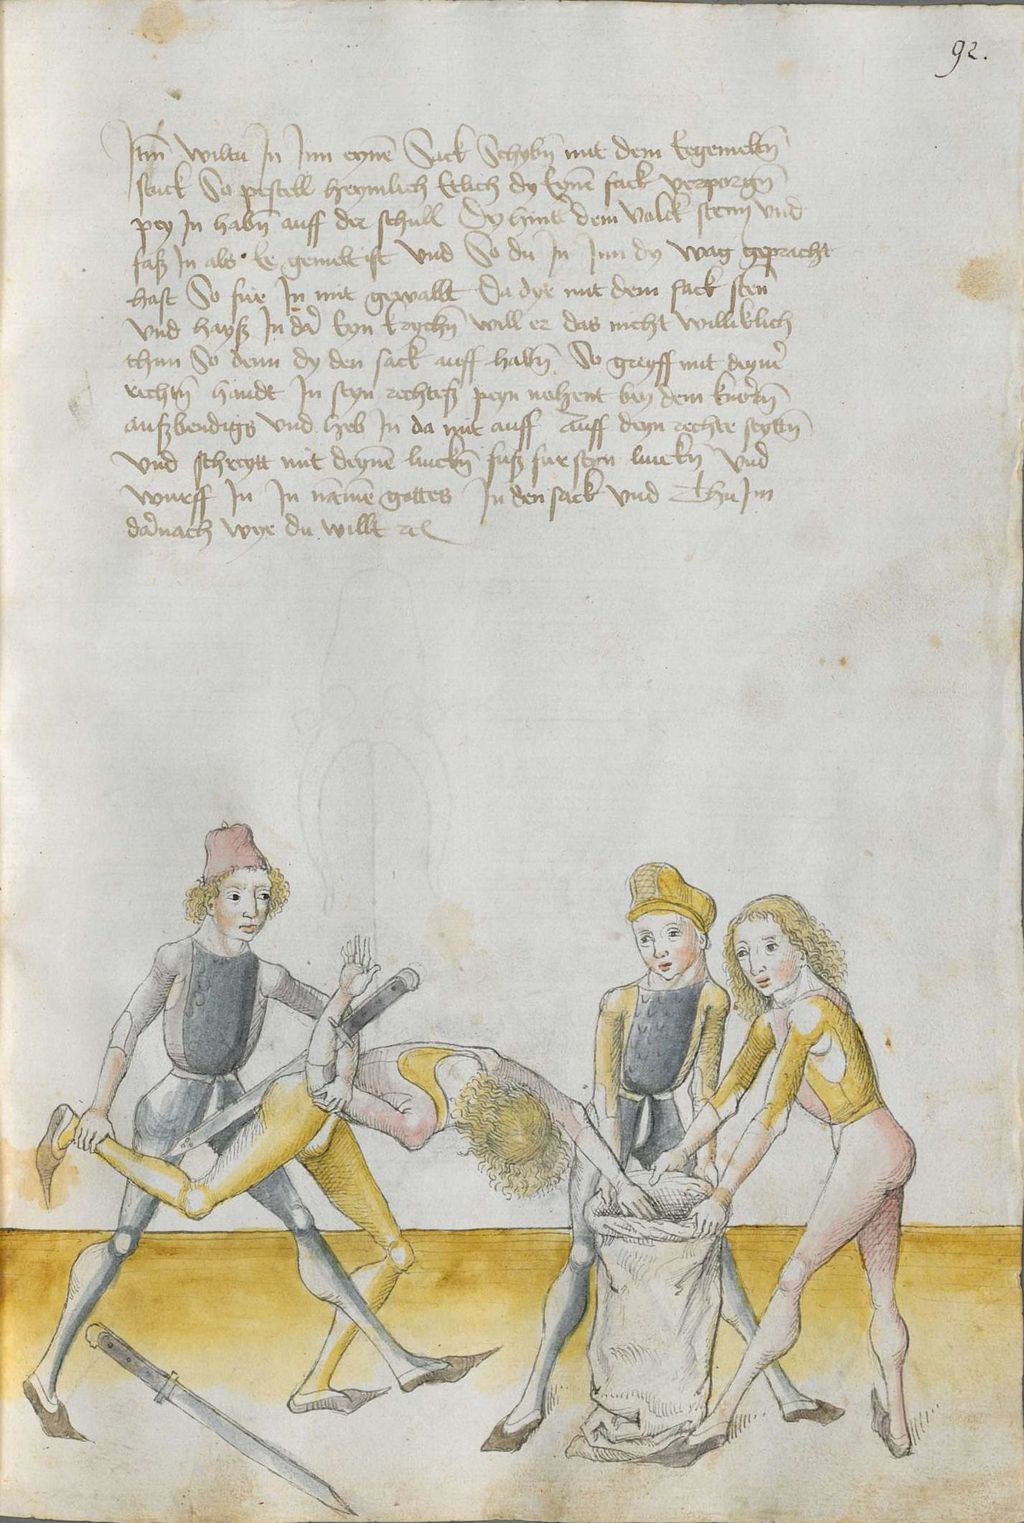 92.
Itm̄ wiltu In Inn eynē Sack Schybn̄ mit dem Eegemeltn̄
stuck So pestell heymlich Etlich dy Eynē sack verporgn̄
pey In habn̄ auff der schull Dy hintē dem volck stenn und
faß In als Ee gemelt ist Und So du In Inn dy wag gepracht
hast So füe In mit gewallt Da dye mit dem sack sten
Und hayß In dar̄ Eyn krychn̄ will er das nicht williklich
thun So denn dy den sack auff habn̄ So greyff mit deynē
rechtn̄ handt In seyn rechteß peyn nahent bey dem
außbendigs Und heb In da mit auff Auff deyn rechte seyttn̄
Und schreytt mit deynē linckn̄ fuß fur seyn linckn̄ Und
wurff In In namē gottes In den sack Und Thu Im
dar̄nach wye du willt